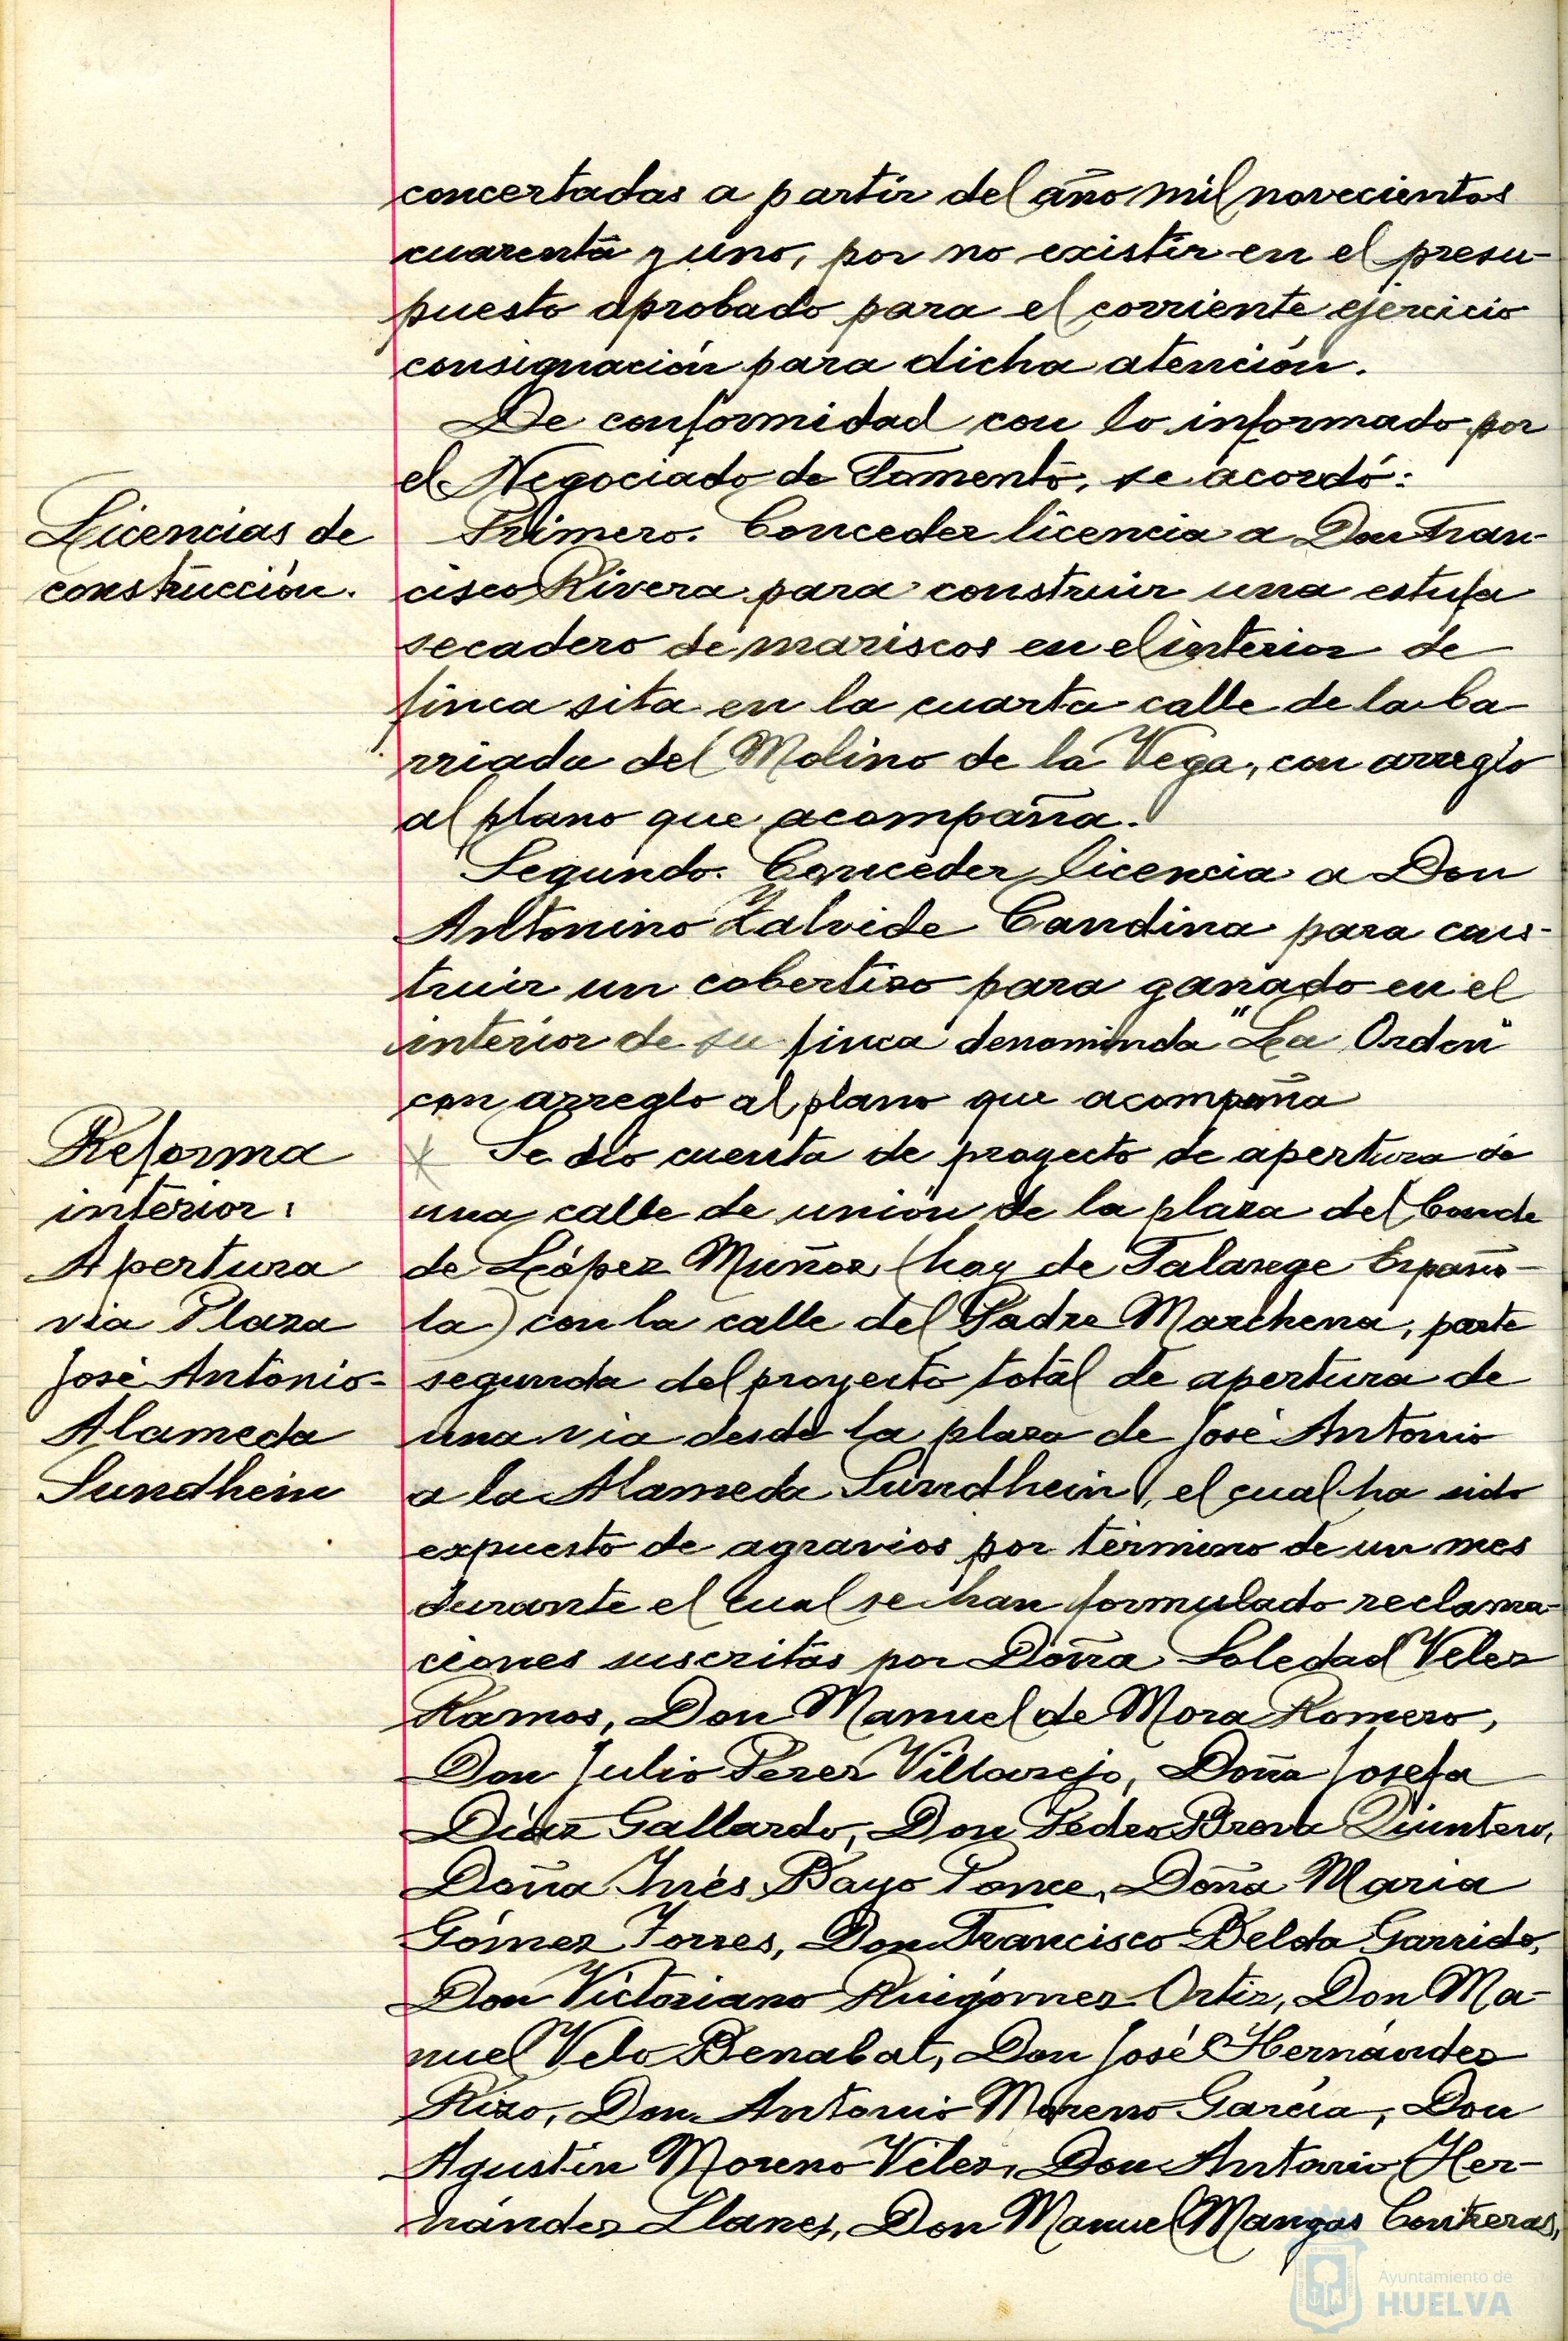 concertadas a partir del año mil novecientos
cuarenta y uno, por no existir en el presu-
puesto aprobado para el corriente ejercicio
consignación para dicha atención.
De conformidad con lo informado por
el Negociado de Fomento, se acordó:
Licencias de
construcción.
Primero. Conceder licencia a Don Fran-
cisco Rivera para construir una estufa
secadero de mariscos en el interior de
finca sita en la cuarta calle de la ba
rriada del Molino de la Vega, con arreglo
al plano que acompaña.
Segundo. Conceder licencia a Don
Antonino Zalvide Candina para cons-
truir un cobertizo para ganado en el
interior de su finca denominda "La Orden"
con arreglo al plano que acompaña
Reforma
interior:
Apertura
via Plaza
José Antonio-
Alameda
Sundhein
Se dió cuenta de proyecto de apertura de
una calle de unión de la plaza del Conde
de López Muñoz (hoy de Falange Españo-
la) con la calle del Padre Marchena, parte
segunda del proyecto total de apertura de
una via desde la plaza de José Antonio
a la Alameda Sundhein, el cual ha sido
expuesto de agravios por término de un mes
durante el cual se han formulado reclama-
ciones suscritas por Doña Soledad Velez
Ramos, Don Manuel de Mora Romero,
Don Julio Perez Villarejo, Doña Josefa
Díaz Gallardo, Don Pedro Quintero,
Doña Inés Bayo Ponce, Doña Maria
Gómez Torres, Don Francisco Belda Garrido,
Don Victoriano Ruigómez Ortiz, Don Ma-
nuel Velo Benabat, Don José Hernández
Rizo, Don Antonio Moreno García, Don
Agustín Moreno Vélez, Don Antonio Her-
nández Llanes, Don Manuel Mangas Contreras,
Ayuntamiento de
HUELVA